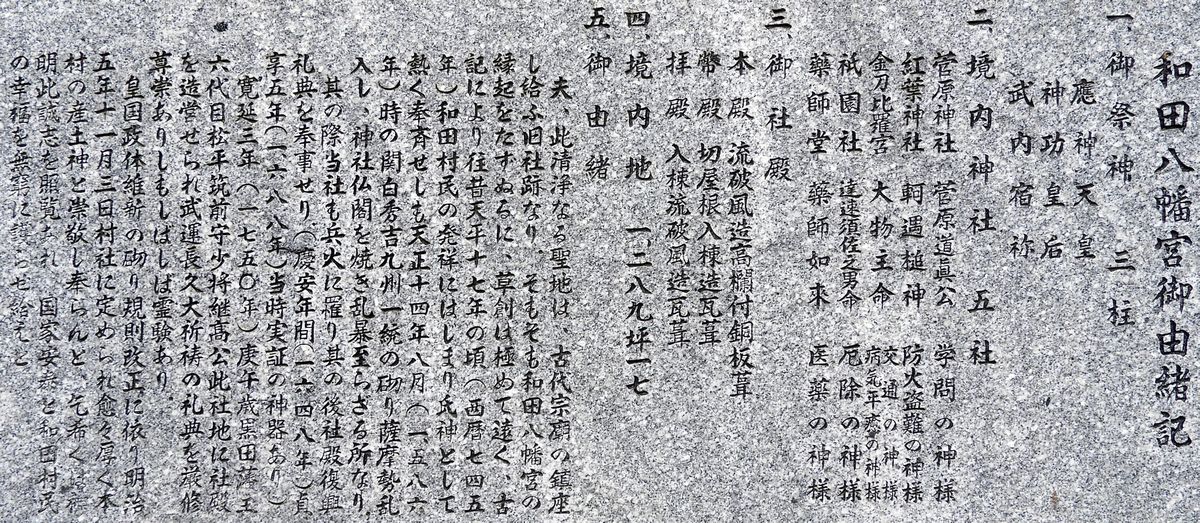 和田八幡宮御由緒記
一、御祭神 三柱
應神天皇
神功皇后
武内宿祢
二、境内神社 五社
菅原神社 菅原道真公 学問の神様
紅葉神社 軻遇槌神 防火盗難の神様
金刀比羅宮 大物主命 交通の神様 病気平癒の神様
祇園社 建速須佐之男命 厄除の神様
薬師堂 薬師如来 医薬の神様
三、御社殿
本殿 流破風造高欄付銅板葺
幣殿 切屋根入棟造瓦葺
拝殿 入棟流破風造瓦葺
四、境内地 一、二八九坪一七
五、御由緒
夫、此清浄なる聖地は、古代宗廟の鎮座
し給ふ旧社跡なり。そもそも和田八幡宮の
縁起をたずぬるに、草創は極めて遠く、古
記により往昔天平十七年の頃(西暦七四五
年)和田村民の発祥にはしまり氏神として
熱く奉斉せしも天正十四年八月(一五八六
年)時の関白秀吉九州一統の砌り薩摩勢乱
入し、神社仏閣を焼き乱暴至らざる所なり。
其の際当社も兵火に罹り其の後社殿復興
礼典を奉事せり(慶安年間(一六四八年)貞
享五年(一六八八年)当時実証の神器あり)
寛延三年(一七五〇年)庚午歳黒田藩主
六代目松平筑前守少将継高公此社地に社殿
を造営せられ武運長久大祈祷の礼典を厳修
尊崇ありしもしばしば霊験あり。
皇国政体維新の砌り規則改正に依り明治
五年十一月三日村社に定められ愈々厚く本
村の産土神と崇敬し奉らんと乞希くは
明此誠志を照覧され 国家安泰と和田村民
の幸福を無窮に護らせ給えと